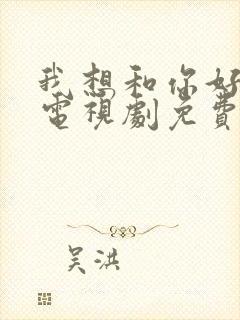 我想和你好
電視劇免費
吳洪